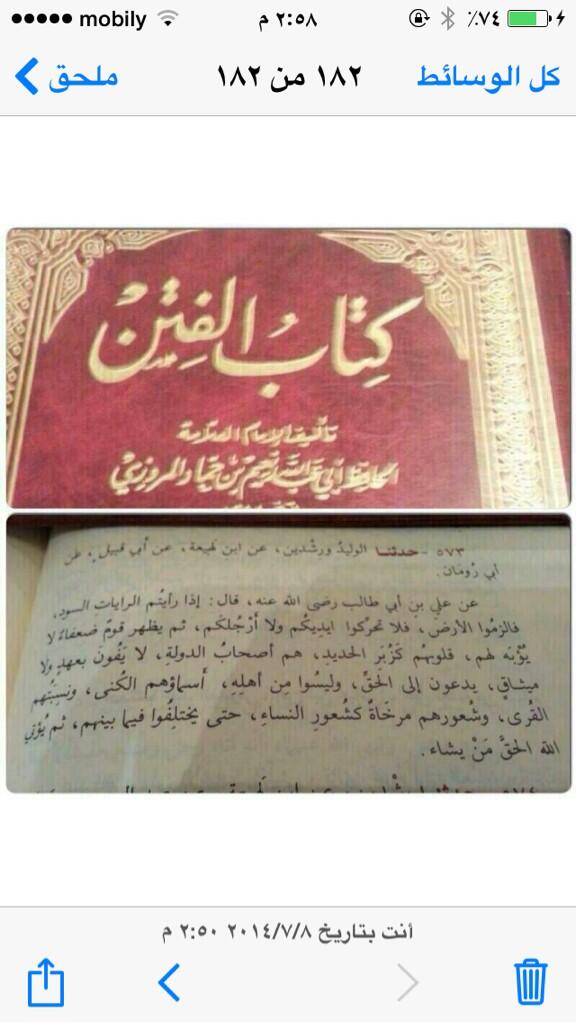 mobily ٢:٥٨ م ٧٤٪
ملحق ١٨٢ من ١٨٢ كل الوسائط
كِتابُ الفِتَن
تأليف الإمام العلامة
الحافظ أبي عبد الله نعيم بن حماد المروزي
٥٧٣ - حدثنا الوليد ورشدين، عن ابن لهيعة، عن أبي قبيل، عن
أبي رُومَان.
عن علي بن أبي طالب رضى الله عنه، قال: إذا رأيتُم الرايات السود،
فالزمُوا الأرْضَ، فلا تحرّكوا ايديكُم ولا أرْجُلكُم، ثم يظهر قومٌ ضعفاءُ لا
يُؤبَه لهم، قلوبهُم كَزُبَرِ الحديدِ، هم أصحابُ الدولةِ، لا يَفُونَ بعهدٍ ولا
ميثاقٍ، يدعون إلى الحقِّ، وليسُوا مِن أهلِهِ، أسماؤهم الكُنى، ونسبتُهم
القُرى، وشُعورهم مرخَاةٌ كشُعورِ النساءِ، حتى يختلفُوا فيما بينهم، ثم يُؤتي
الله الحقَّ مَنْ يشاء.
أنت بتاريخ ٢٠١٤/٧/٨ ٢:٥٠ م